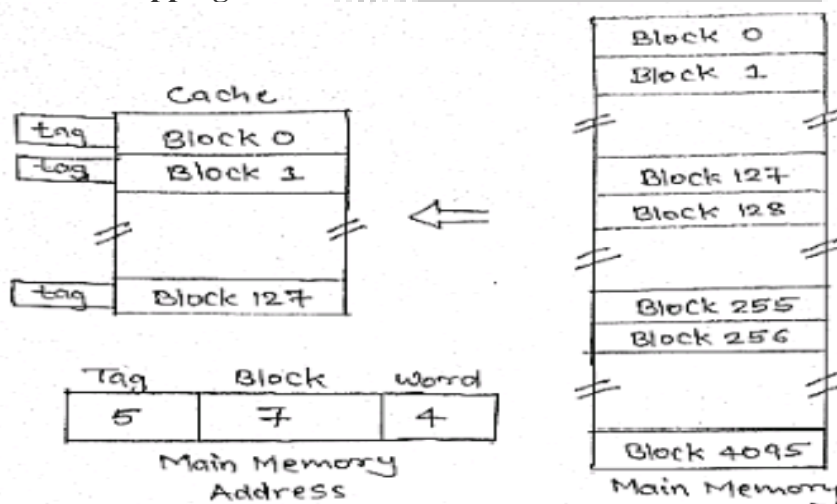 pping
Cache
tag
Block 0
tag
Block 1
tag
Block 127
Tag Block Word
5 7 4
Main Memory
Address
Block 0
Block 1
Block 127
Block 128
Block 255
Block 256
Block 4095
Main Memory